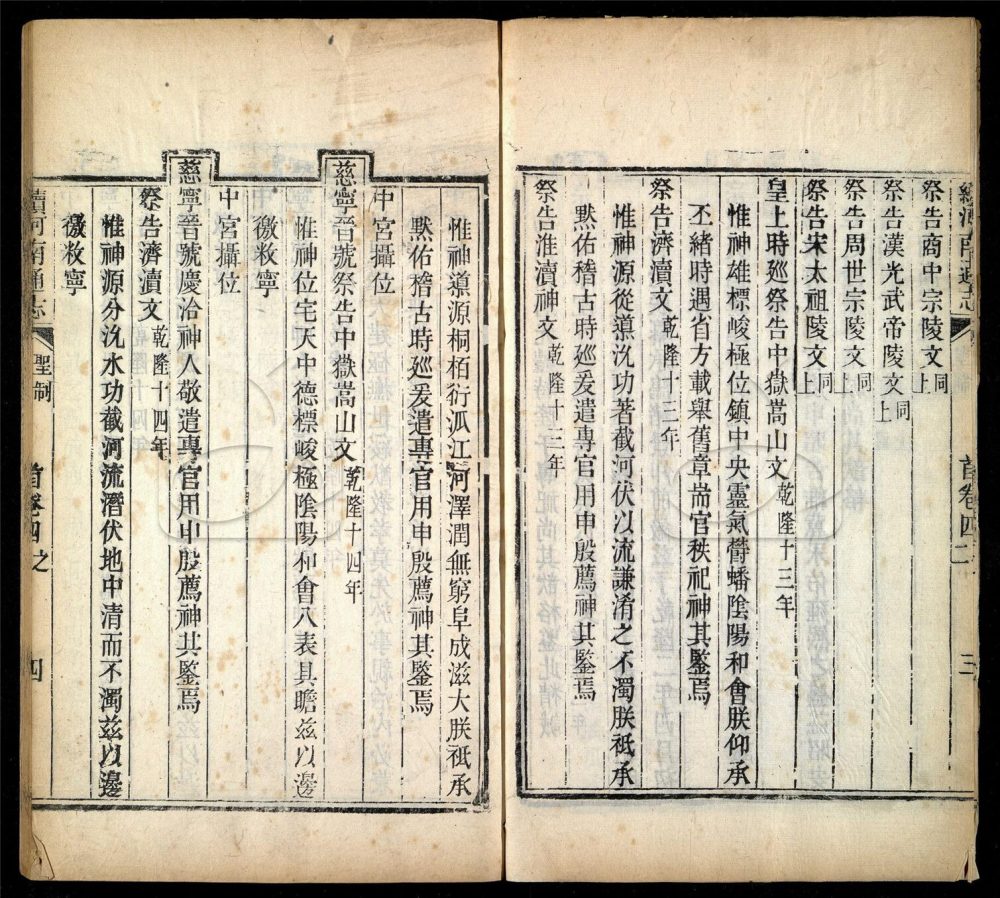 續河南通志
首卷四之
三
祭告商中宗陵文同上
祭告漢光武帝陵文同上
祭告周世宗陵文同上
祭告宋太祖陵文同上
皇上時廵祭告中嶽嵩山文乾隆十三年
惟神雄標峻極位鎮中央靈氣鬱蟠陰陽和會朕仰承
丕緒時遇省方載舉舊章耑官秩祀神其鑒焉
祭告濟瀆文乾隆十三年
惟神源從導沇功著截河伏以流謙淆之不濁朕祗承
默佑稽古時廵爰遣專官用申殷薦神其鑒焉
祭告淮瀆神文乾隆十三年
惟神導源桐栢衍泒江河澤潤無窮阜成滋大朕祗承
默佑稽古時廵爰遣專官用申殷薦神其鑒焉
中宮攝位
慈寧晉號祭告中嶽嵩山文乾隆十四年
惟神位宅天中德標峻極陰陽和會八表具瞻兹以邊
徼敉寧
中宮攝位
慈寧晉號慶洽神人敬遣專官用申殷薦神其鑒焉
祭告濟瀆文乾隆十四年
惟神源分沇水功截河流潛伏地中清而不濁兹以邊
徼敉寧
續河南通志
聖制
首卷四之
四